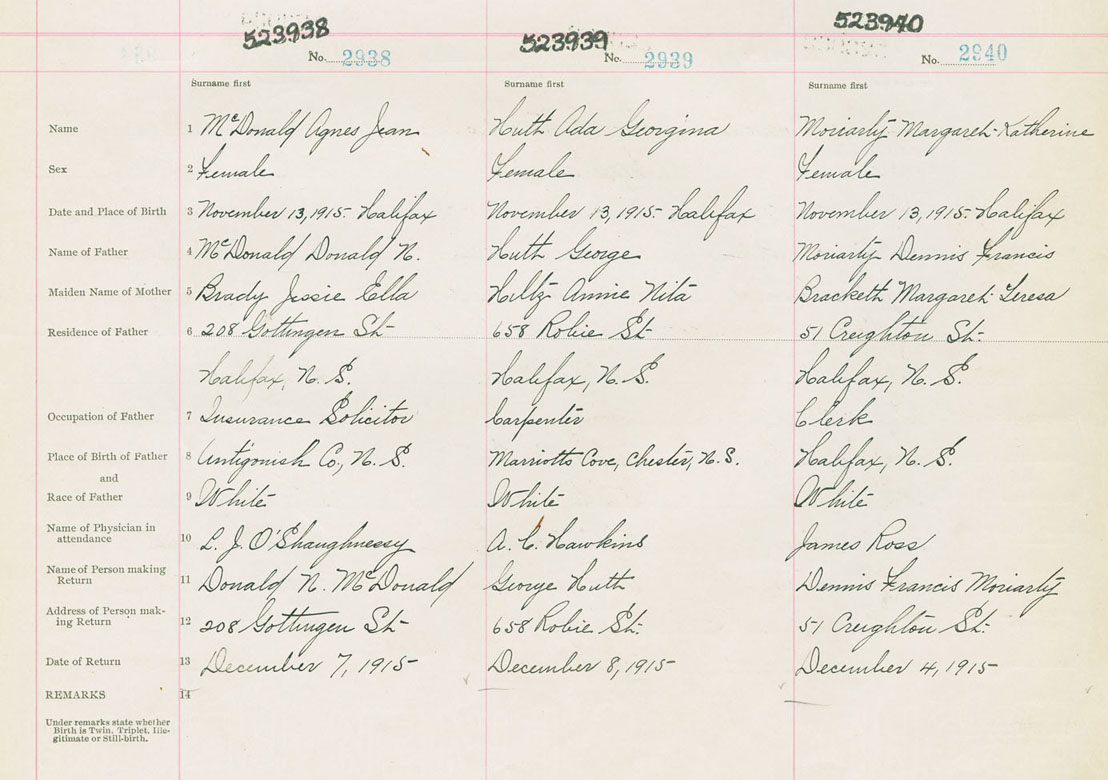 523938 523939 523940
No. 2938 No. 2939 No. 2940
Surname first Surname first Surname first
Name 1 McDonald Agnes Jean Huth Ada Georgina Moriarty Margaret Katherine
Sex 2 Female Female Female
Date and Place of Birth 3 November 13, 1915 - Halifax November 13, 1915 - Halifax November 13, 1915 - Halifax
Name of Father 4 McDonald Donald N. Huth George Moriarty Dennis Francis
Maiden Name of Mother 5 Brady Jessie Ella Hiltz Annie Nita Brackett Margaret Teresa
Residence of Father 6 208 Gottingen St 658 Robie St 51 Creighton St.
Halifax, N. S. Halifax, N. S. Halifax, N. S.
Occupation of Father 7 Insurance Solicitor Carpenter Clerk
Place of Birth of Father 8 Antigonish Co., N. S. Marriotts Cove, Chester, N. S. Halifax, N. S.
and
Race of Father 9 White White White
Name of Physician in
attendance 10 L. J. O'Shaughnessy A. C. Hawkins James Ross
Name of Person making
Return 11 Donald N. McDonald George Huth Dennis Francis Moriarty
Address of Person mak-
ing Return 12 208 Gottingen St 658 Robie St. 51 Creighton St.
Date of Return 13 December 7, 1915 December 8, 1915 December 4, 1915
REMARKS 14
Under remarks state whether
Birth is Twin, Triplet, Ille-
gitimate or Still-birth.